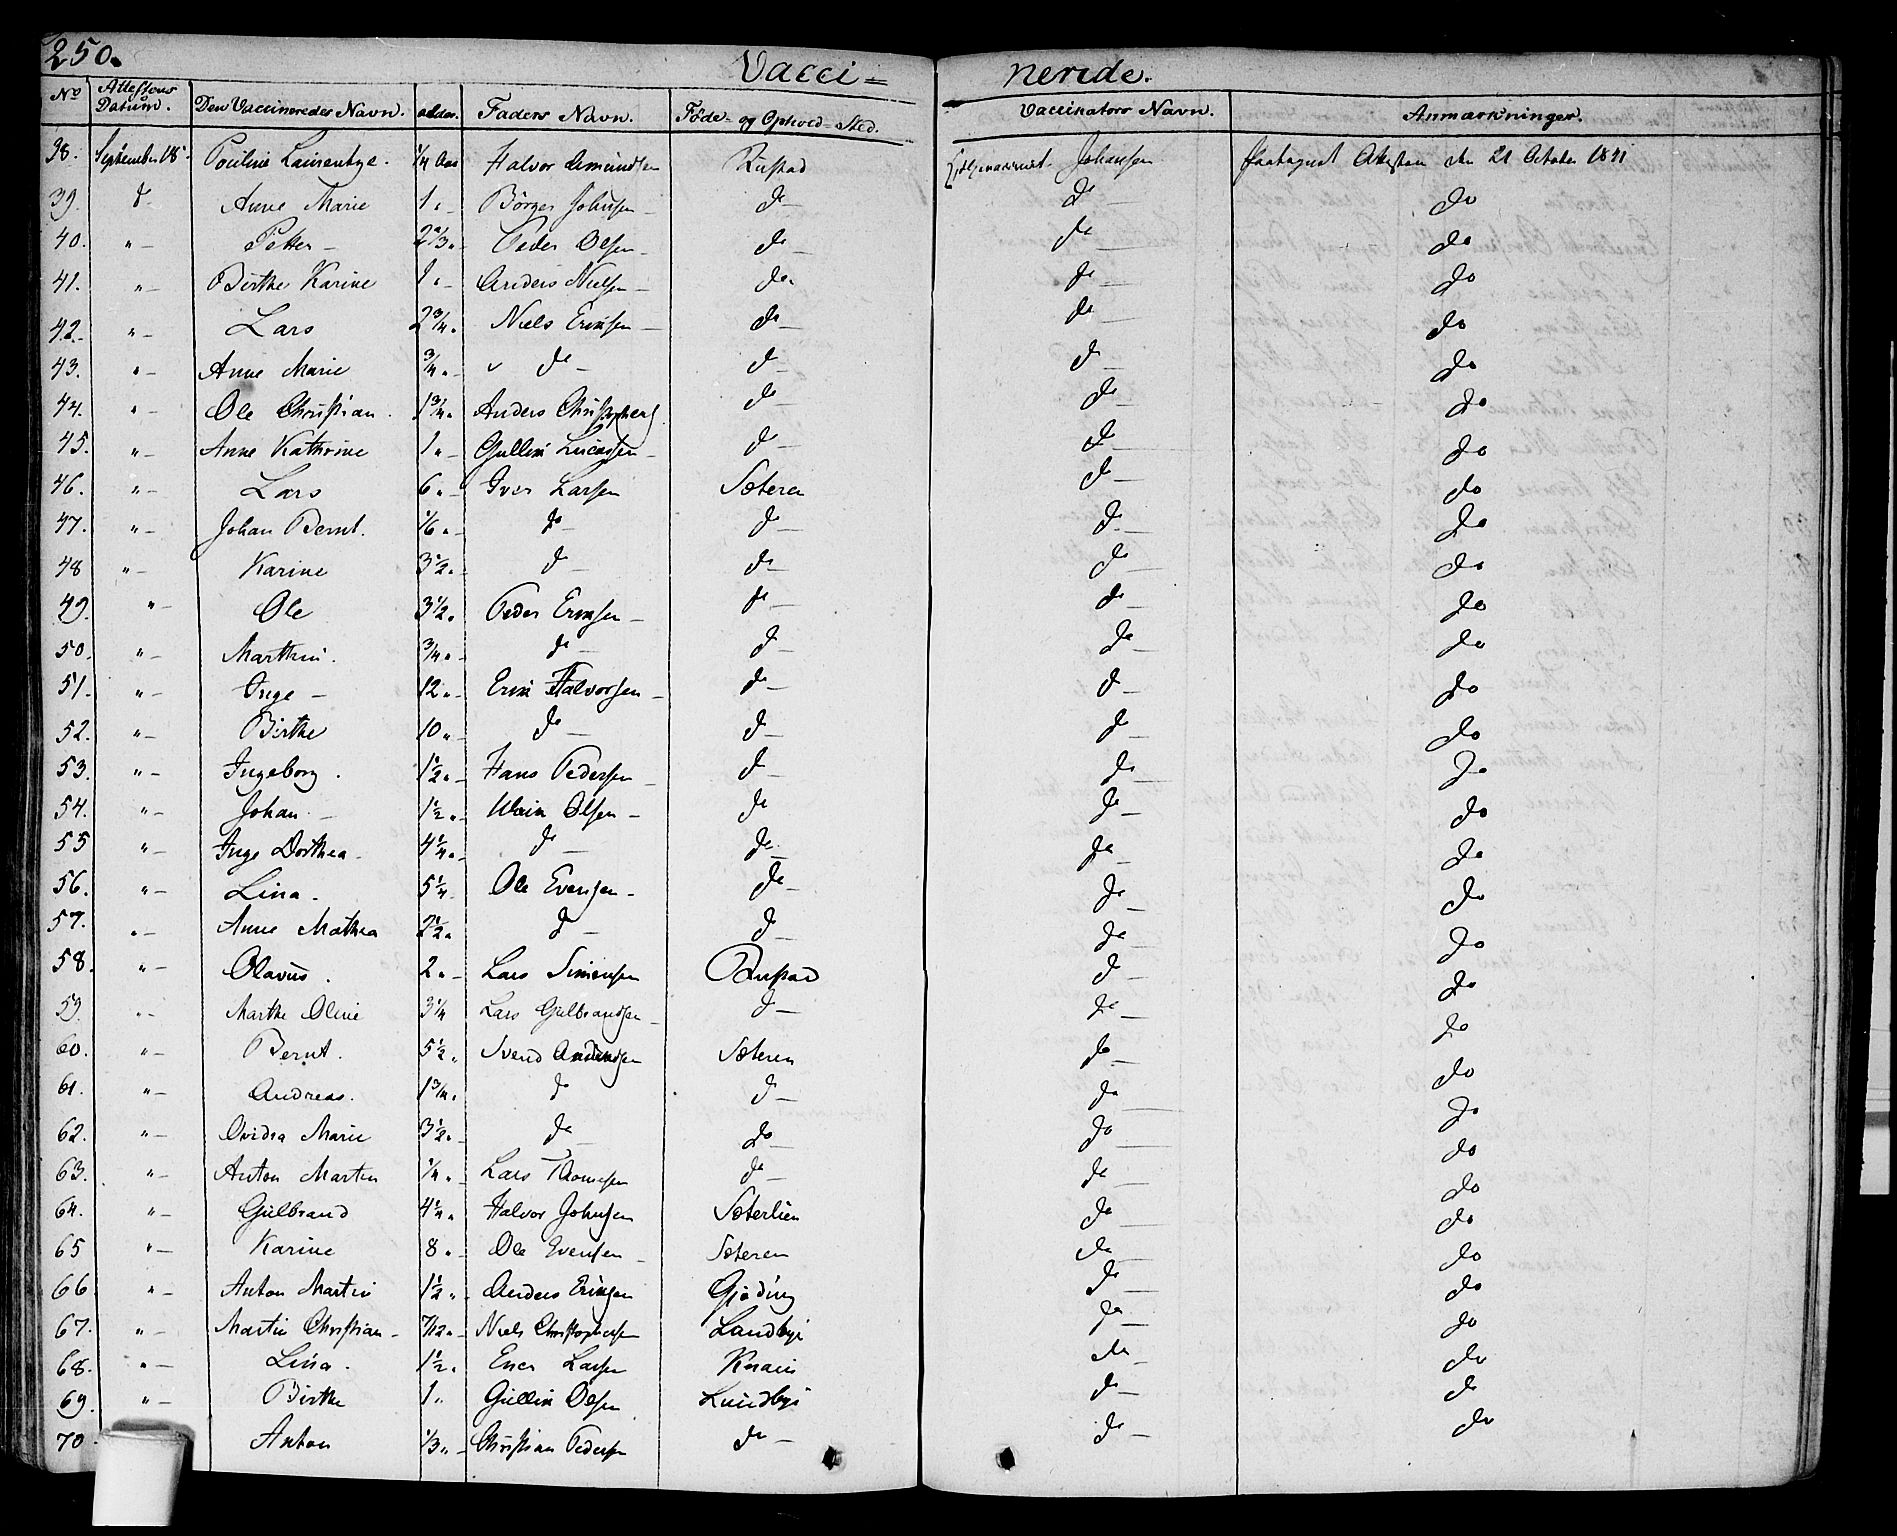 250.
Vacci= neride.
No Attestens Datum. Den Vaccineredes Navn. alder. Faders Navn. Føde- og Ophold-Sted. Vaccinators Navn. Anmærkninger.
38. September 18 Pouline 1/4 Aar Halvor Amundsen Rustad Johansen Attesten den 21 October 1841
39. d- Anne Marie 1 "- Børger Johnsen - do- do- do
40. "- Petter - 2 2/3 "- Peder Olsen - do- do- do
41. "- Birthe Karine 1 "- Anders Nielsen - do- do- do
42. "- Lars 2 3/4 " Niels Ericksen - do- do- do
43. "- Anne Marie 3/4 "- " do- do- do- do
44. "- Ole Christian. 1 3/4 " Anders Christophers do- do- do
45. "- Anne Kathrine 1 "- Gullik - do- do- do
46. "- Lars 6 "- Iver Larsen Sæteren do- do
47. "- Johan Bernt. 1/6 "- do- do- do- do
48 "- Karine 3 1/2 "- do- do- do- do
49. "- Ole 3 1/2 " Peder Ericksen - do- do- do
50. "- Marthin. 3/4 "- do- do- do- do
51. "- Inge - 12 "- Erik Halvorsen - do- do- do
52. "- Birthe 10 "- do- do- do- do
53. "- Ingeborg. 1 1/2 "- Hans Pedersen - do- do- do
54. "- Johan - 1 1/2 "- Olsen - do do- do
55 "- Inge Dorthea. 4 1/4 "- do- do- do- do
56. "- Lina. 5 1/4 Ole Evensen - do- do- do
57. "- Anne Mathea 2 1/2 " do- do- do- do
58. "- Olavus. 2 "- Lars Simensen Rustad do- do
59. "- Marthe Oline 3 1/4 Lars Gulbrandsen - do- do- do
60. "- Bernt. 5 1/2 " Svend Sæteren do- do
61. "- Andreas. 1 3/4 " do do- do do
62. "- Marie 3 1/2 " do- do- do- do
63. "- Anton Martin 1/4 "- Lars Thomesen do- do- do
64. "- Gulbrand 4 1/4 " Halvor Johnsen Sæterlien do- do
65 "- Karine 8 "- Ole Evensen - Sæteren do- do
66 "- Anton Martin 1 1/2 "- Anders Gjøding do- do
67. "- Martin Christian - 7/12 "- Niels Christophersen Lundbye do- do
68. "- Lina. 1 1/2 " Larsen do- do
69. "- Birthe 1 " Gullik Olsen Lundbye do- do
70 Anton 1/3 "- Christian Pedersen do- do- do